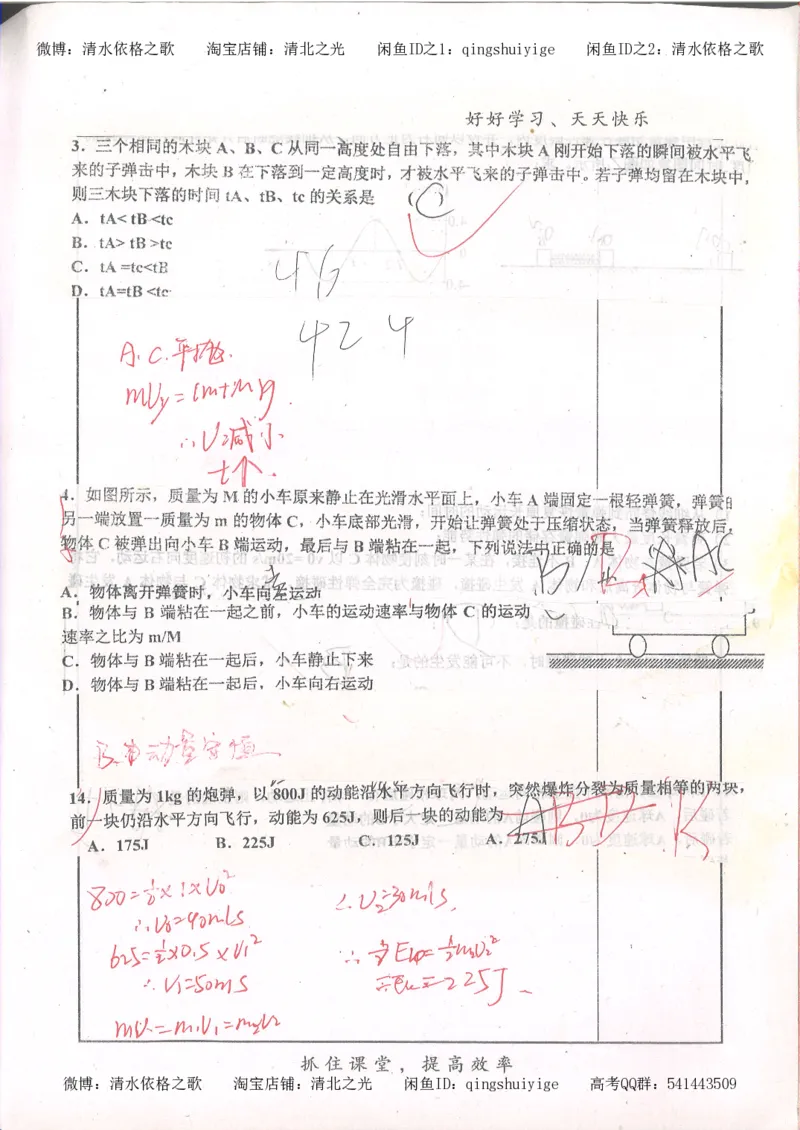 微博：清水依格之歌 淘宝店铺：清北之光 闲鱼ID之1：qingshuiyige 闲鱼ID之2：清水依格之歌
好好学习、天天快乐
3．三个相同的木块 A、B、C 从同一高度处自由下落，其中木块 A 刚开始下落的瞬间被水平飞
来的子弹击中，木块 B 在下落到一定高度时，才被水平飞来的子弹击中。若子弹均留在木块中，
则三木块下落的时间 tA、tB、tc 的关系是 （C）
A．tA< tB <tc
B．tA> tB >tc
C．tA =tc<tB
D．tA=tB <tc
46
424
A.C.平抛
mVy=(m+M)
∴V减小
t↑.
4．如图所示，质量为 M 的小车原来静止在光滑水平面上，小车 A 端固定一根轻弹簧，弹簧的
另一端放置一质量为 m 的物体 C，小车底部光滑，开始让弹簧处于压缩状态，当弹簧释放后，
物体 C 被弹出向小车 B 端运动，最后与 B 端粘在一起，下列说法中正确的是
A．物体离开弹簧时，小车向左运动
B．物体与 B 端粘在一起之前，小车的运动速率与物体 C 的运动
速率之比为 m/M
C．物体与 B 端粘在一起后，小车静止下来
D．物体与 B 端粘在一起后，小车向右运动
动量守恒
14．质量为 1kg 的炮弹，以 800J 的动能沿水平方向飞行时，突然爆炸分裂为质量相等的两块，
前一块仍沿水平方向飞行，动能为 625J，则后一块的动能为
A．175J B．225J C．125J A．275J
800=½×1×V₀²
∴V₀=40m/s
625=½×0.5×V₁²
∴V₁=50m/s
∴V₂=30m/s
=225J
抓住课堂，提高效率
微博：清水依格之歌 淘宝店铺：清北之光 闲鱼ID：qingshuiyige 高考QQ群：541443509